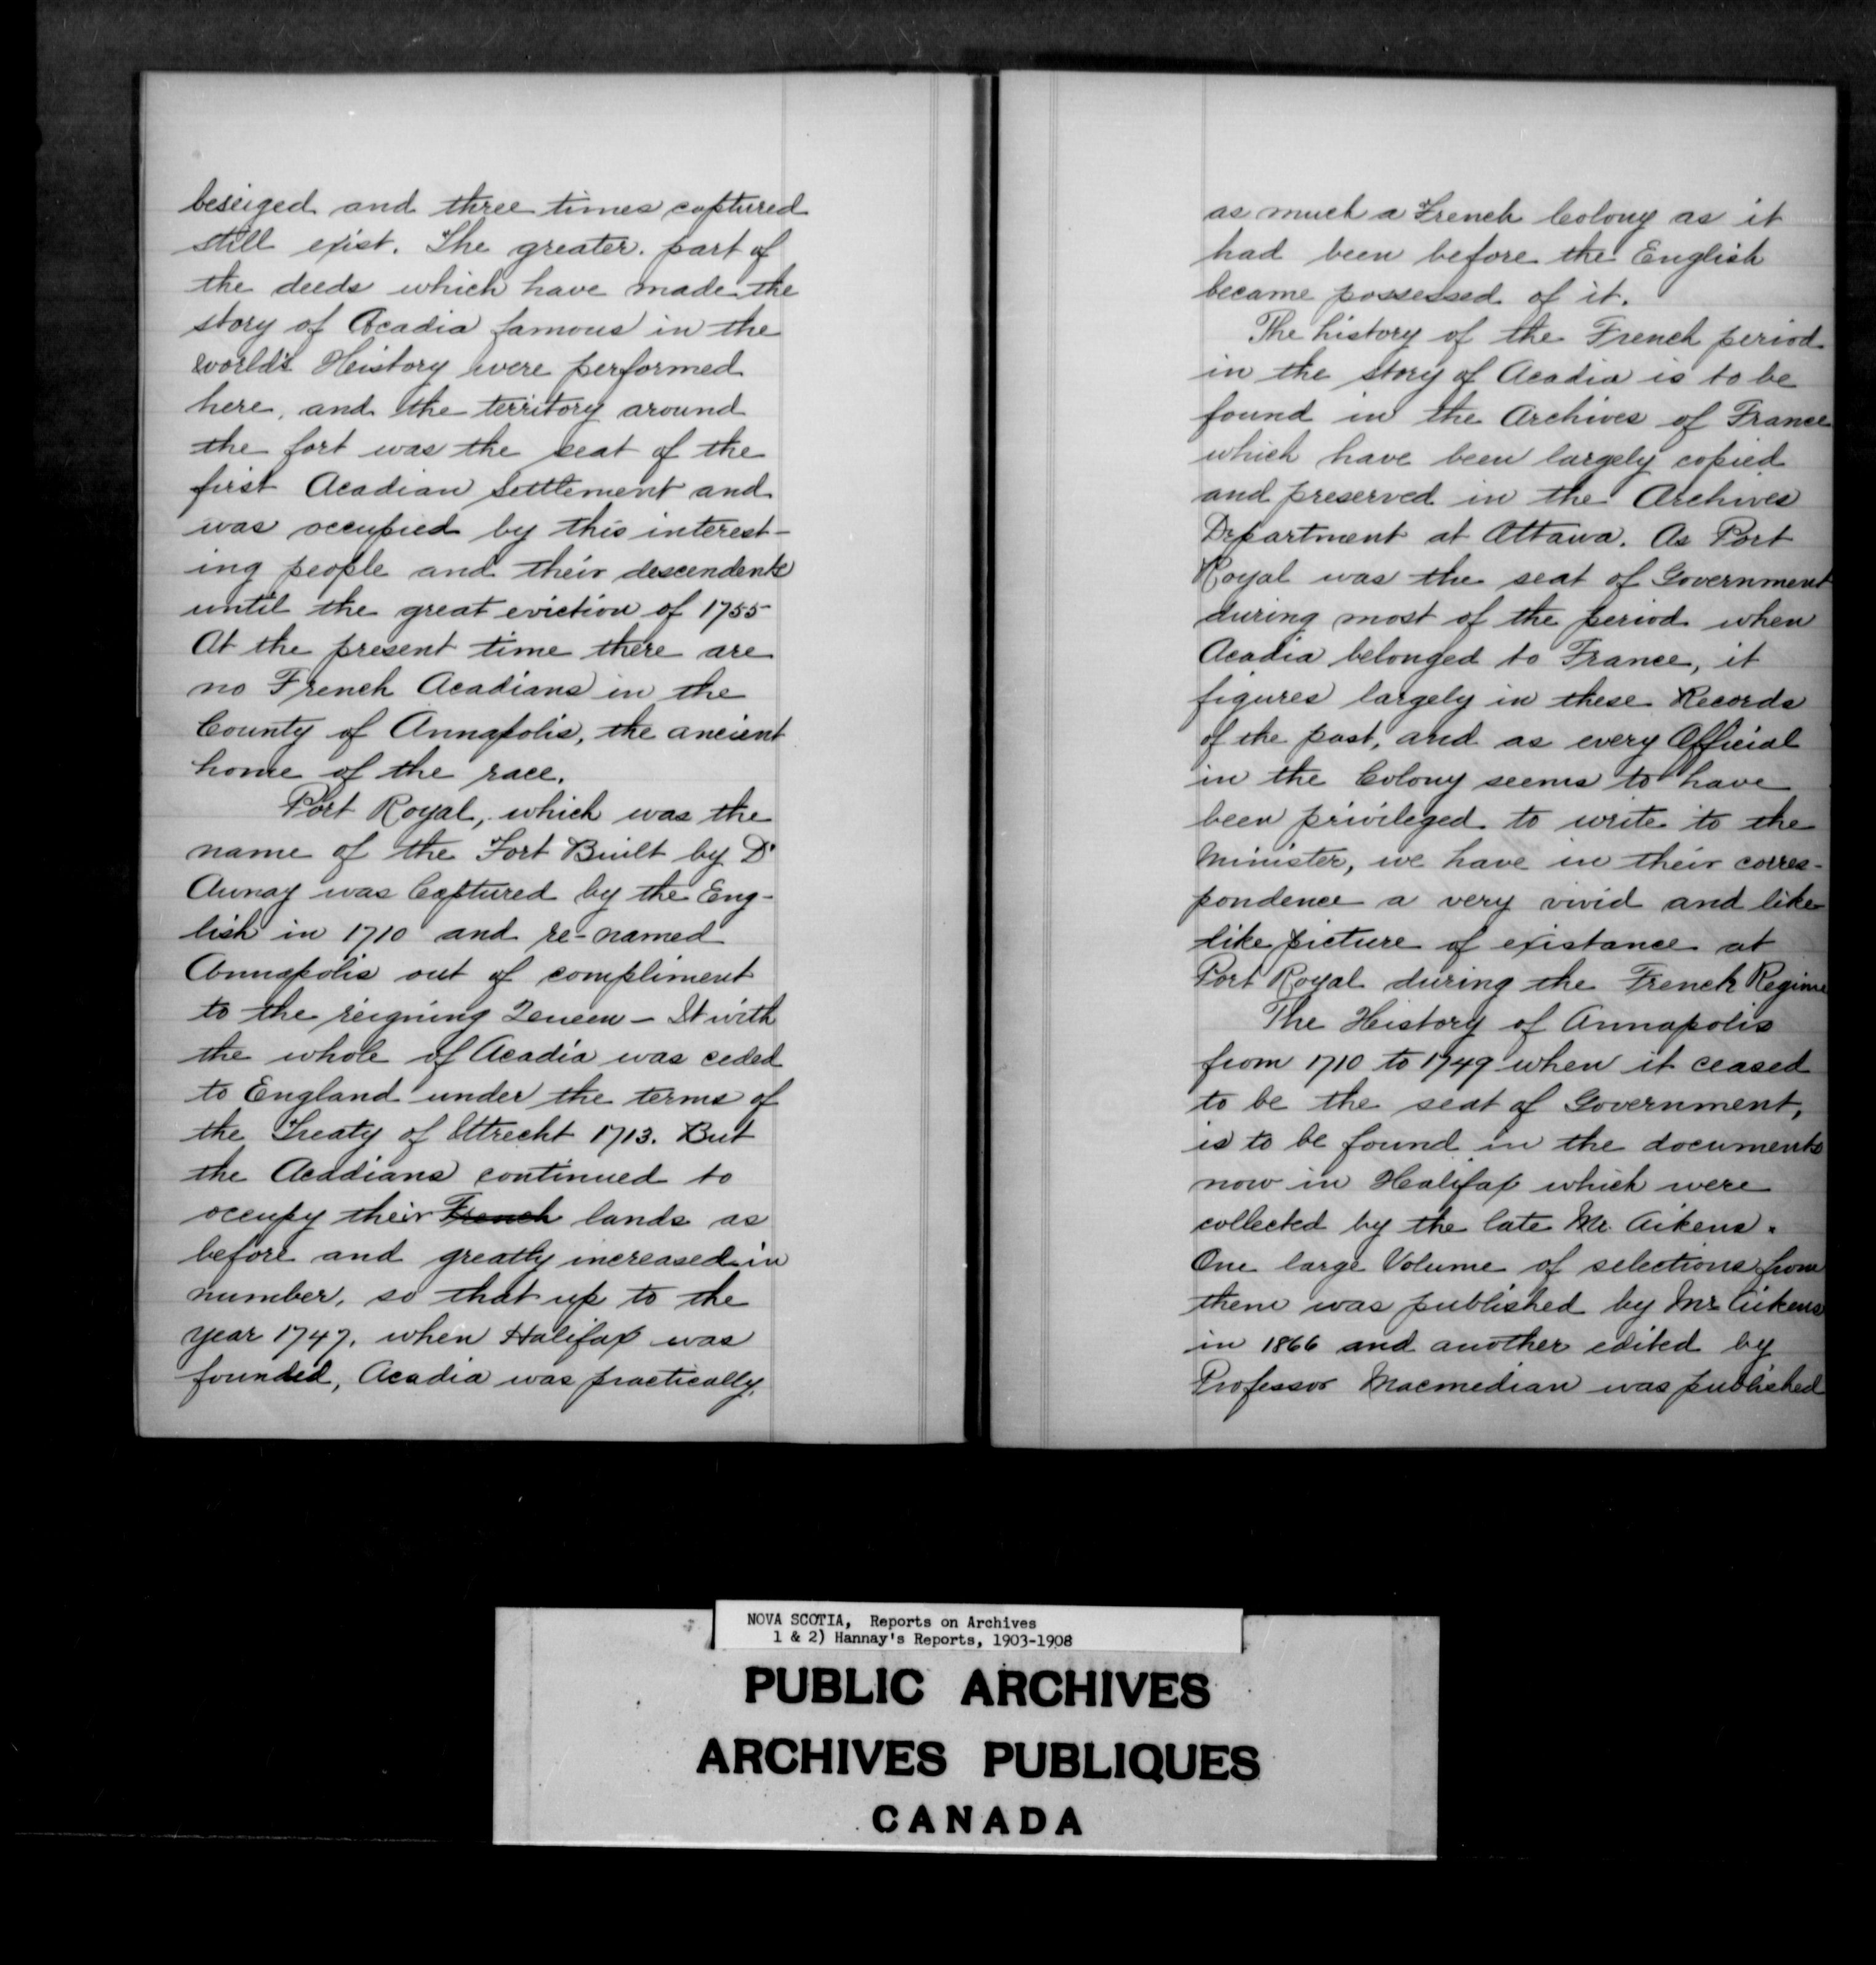 beseiged and three times captured
still exist. The greater part of
the deeds which have made the
story of Acadia famous in the
world's History were performed
here, and the territory around
the fort was the seat of the
first Acadian Settlement and
was occupied by this interest-
ing people and their descendents
until the great eviction of 1755
At the present time there are
no French Acadians in the
County of Annapolis, the ancient
home of the race.
Port Royal, which was the
name of the Fort Built by D'
Aunay was Captured by the Eng-
lish in 1710 and re-named
Annapolis out of compliment
to the reigning Queen - It with
the whole of Acadia was ceded
to England under the terms of
the Treaty of Uttrecht 1713. But
the Acadians continued to
occupy their French lands as
before and greatly increased in
number, so that up to the
year 1747, when Halifax was
founded, Acadia was practically,
as much a French Colony as it
had been before the English
became possessed of it.
The history of the French period
in the story of Acadia is to be
found in the Archives of France
which have been largely copied
and preserved in the Archives
Department at Ottawa. As Port
Royal was the seat of Government
during most of the period when
Acadia belonged to France, it
figures largely in these Records
of the past, and as every Official
in the Colony seems to have
been privileged to write to the
Minister, we have in their corres-
pondence a very vivid and like-
like picture of existance at
Port Royal during the French Regime
The History of Annapolis
from 1710 to 1749 when it ceased
to be the seat of Government,
is to be found in the documents
now in Halifax which were
collected by the late Mr. Aikens.
One large Volume of selections from
them was published by Mr Aikens
in 1866 and another edited by
Professor Macmedian was published
NOVA SCOTIA, Reports on Archives
1 & 2) Hannay's Reports, 1903-1908
PUBLIC ARCHIVES
ARCHIVES PUBLIQUES
CANADA